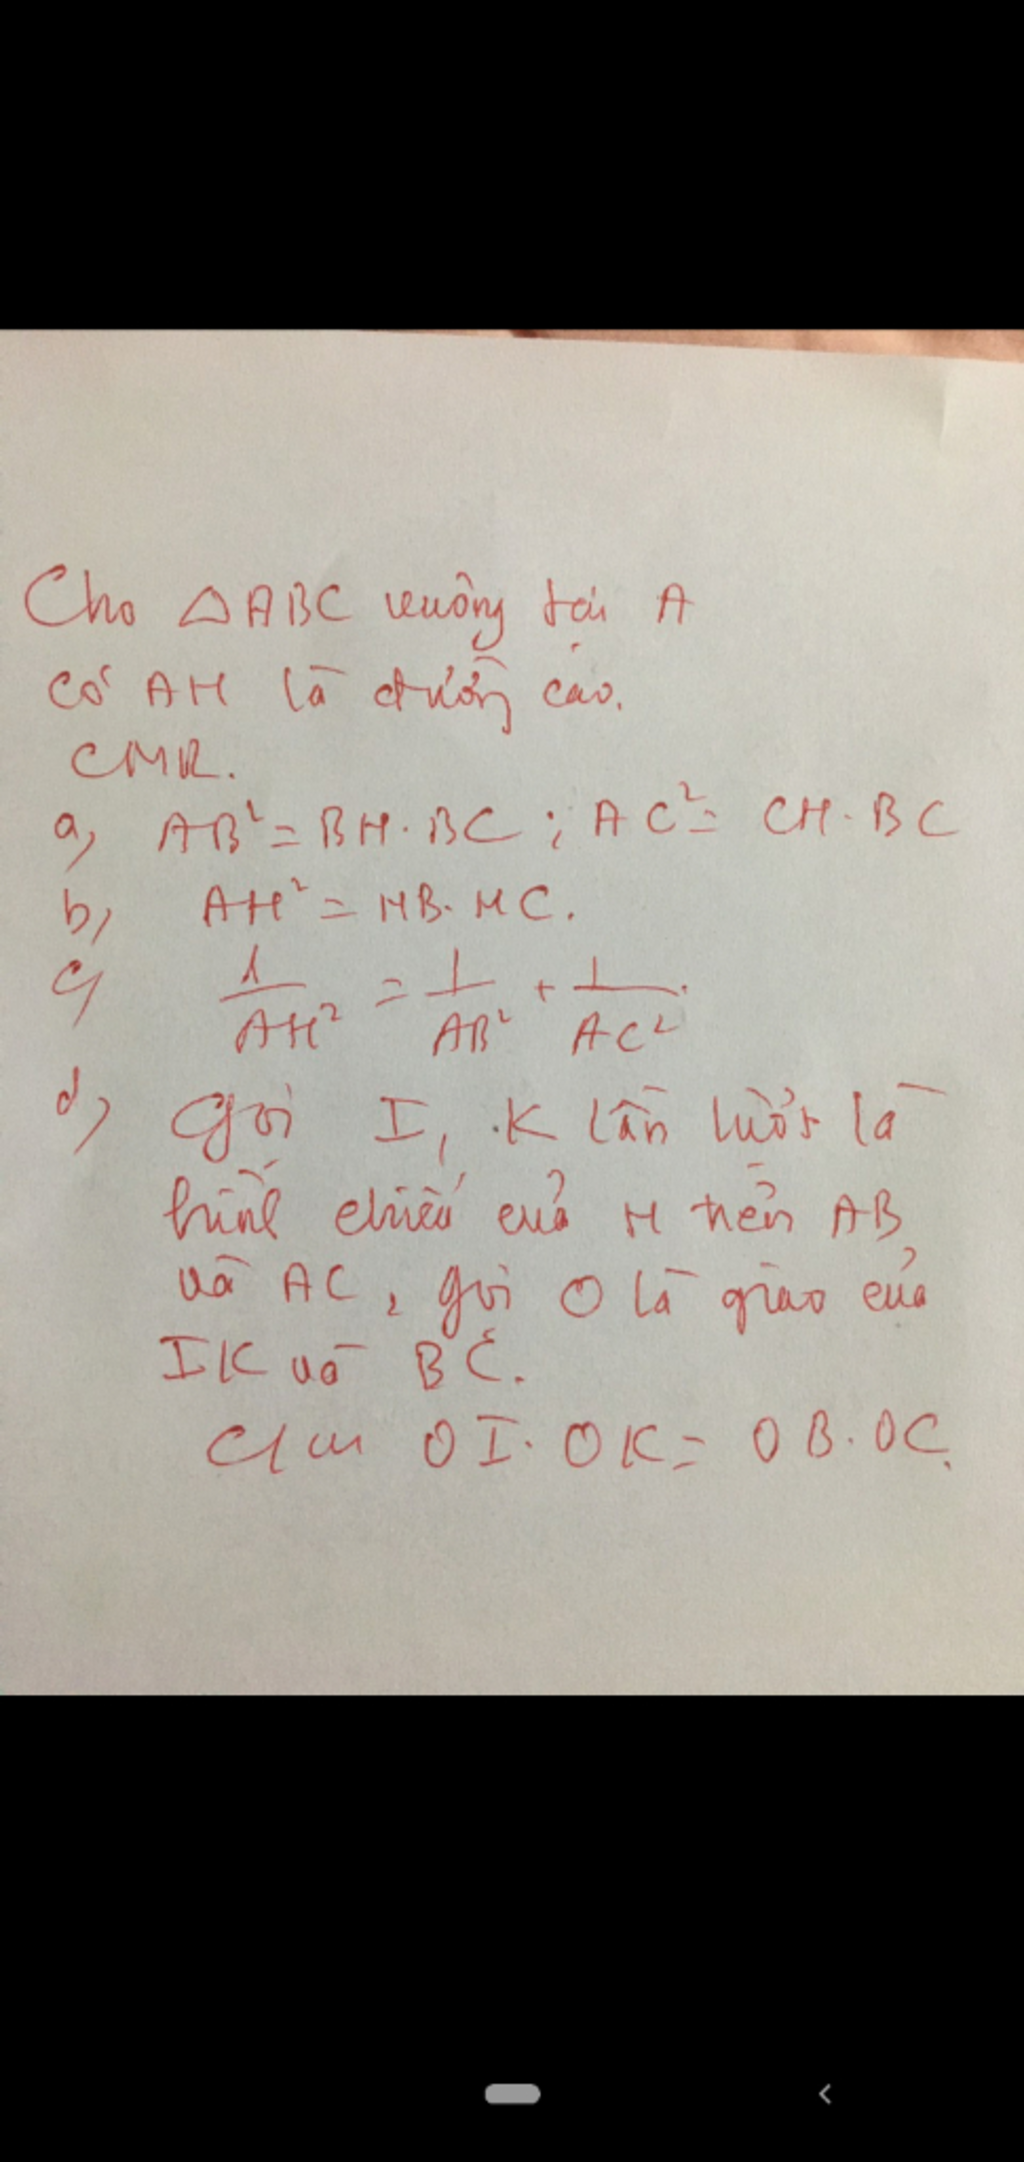 Cho △ABC vuông tại A
có AH là đường cao.
CMR.
a, AB² = BH.BC ; AC² = CH.BC
b, AH² = HB.HC.
c, 1/AH² = 1/AB² + 1/AC².
d, Gọi I, K lần lượt là
hình chiếu của H trên AB
và AC, gọi O là giao của
IK và BC.
C/m OI.OK = OB.OC.